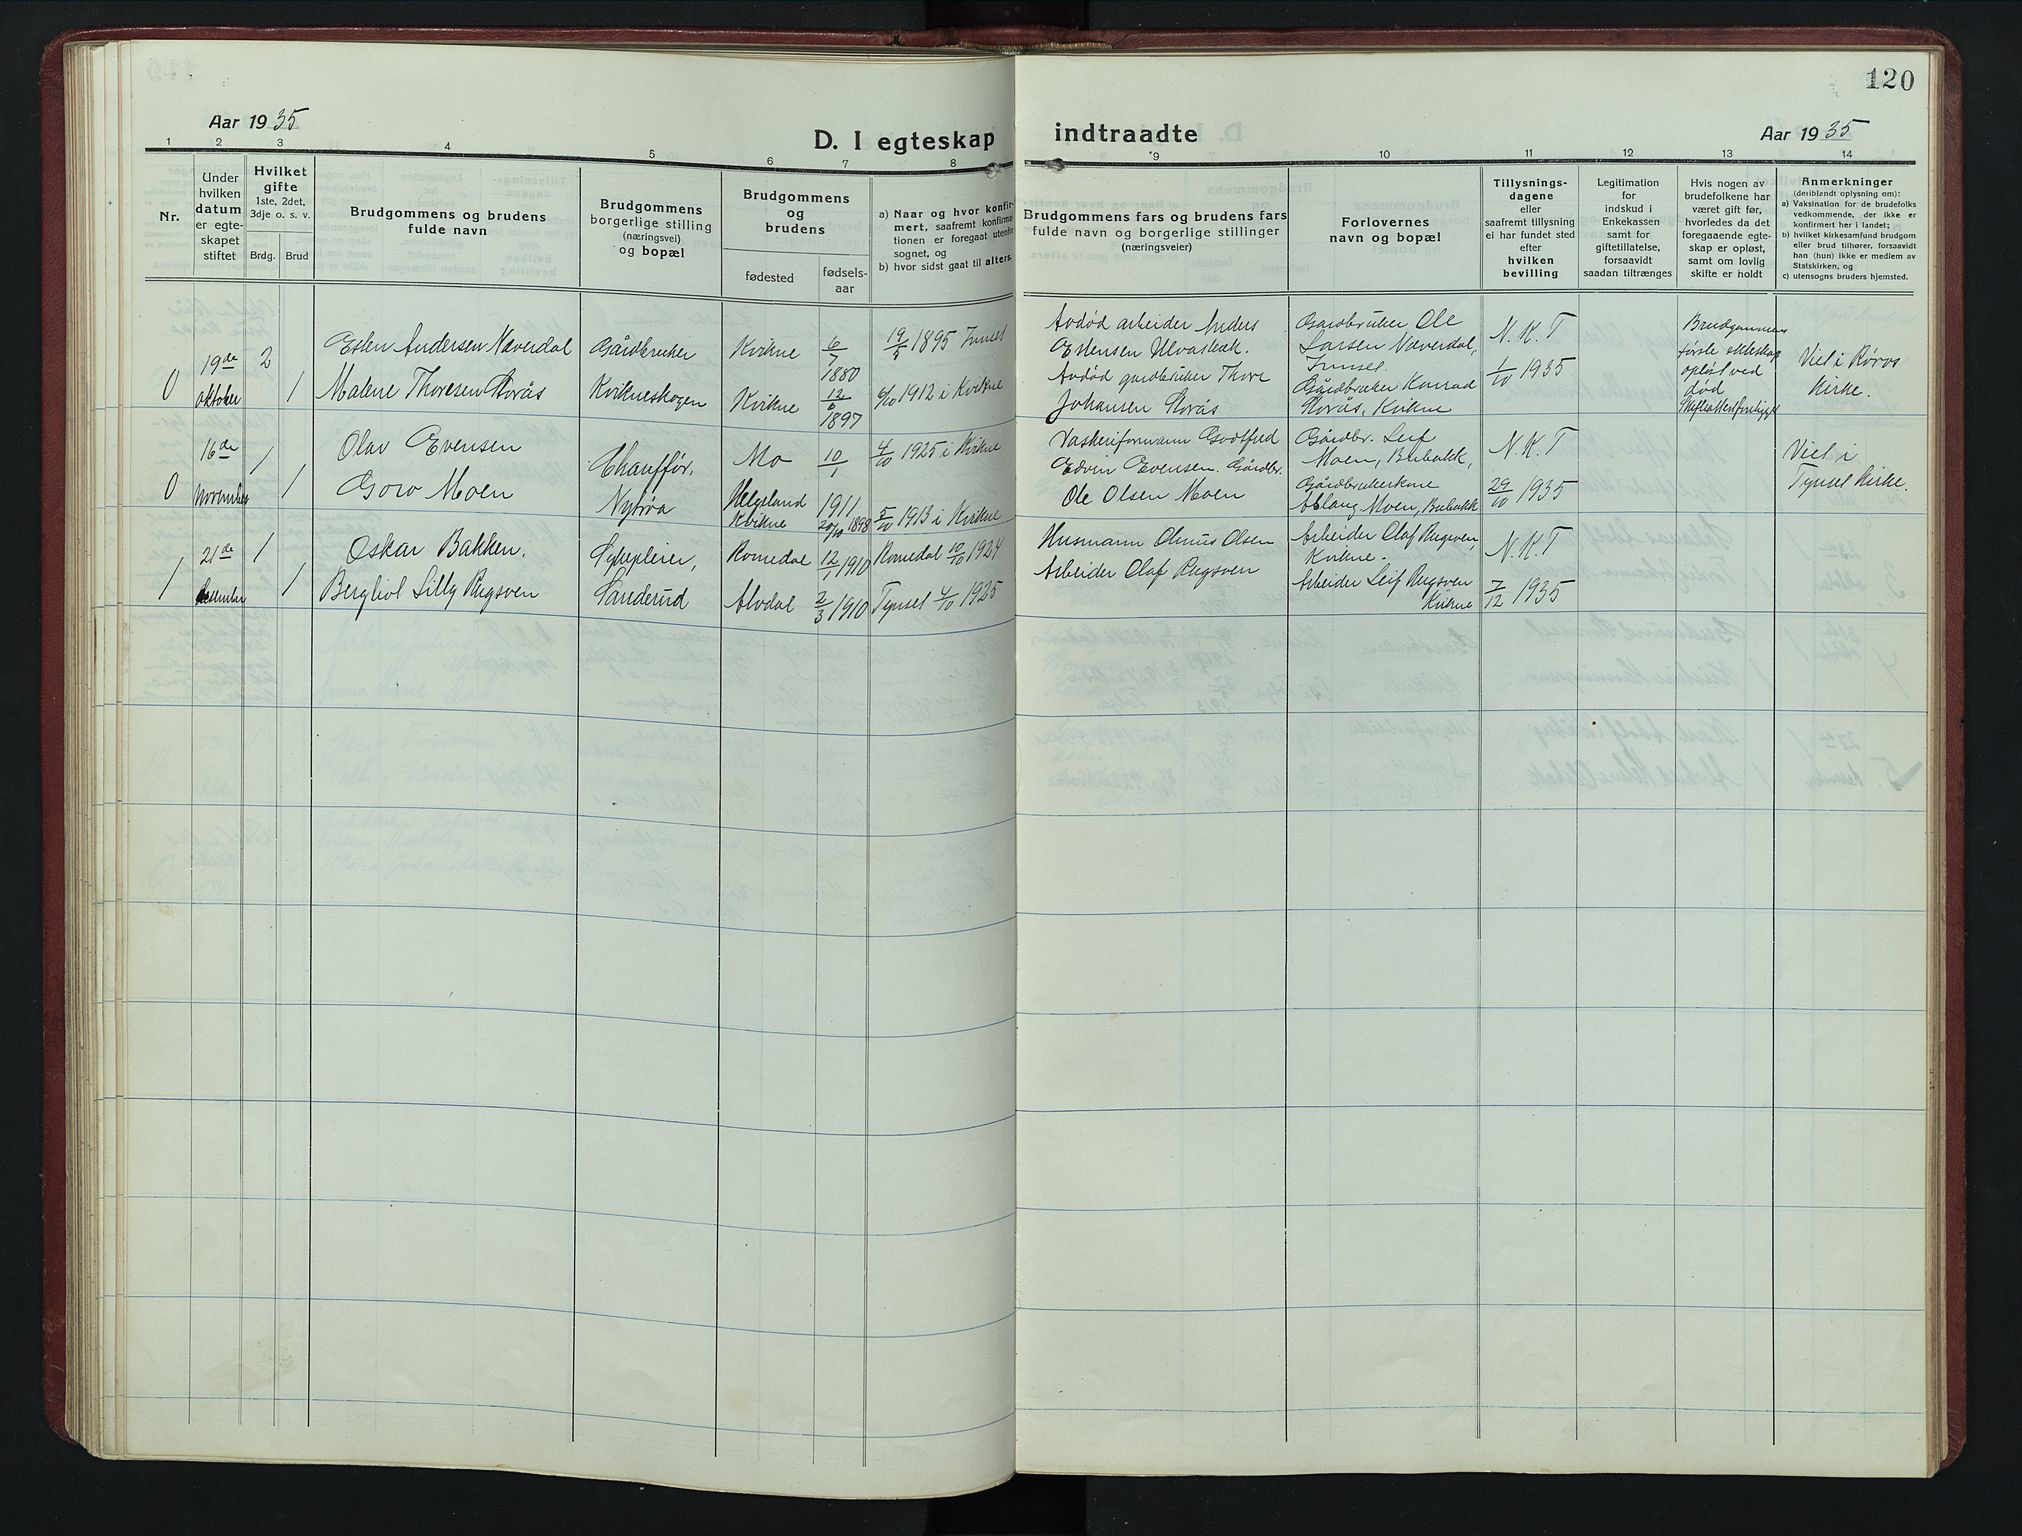 120
Aar 1935
D. I egteskap indtraadte
Aar 1935
1 2 3 4 5 6 7 8 9 10 11 12 13 14
Nr.
Under
hvilken
datum
er egte-
skapet
stiftet
Hvilket
gifte
1ste, 2det,
3dje o. s. v.
Brdg. Brud
Brudgommens og brudens
fulde navn
Brudgommens
borgerlige stilling
(næringsvei)
og bopæl
Brudgommens
og
brudens
fødested
fødsels-
aar
a) Naar og hvor konfir-
mert, saafremt konfirma-
tionen er foregaat utenfor
sognet, og
b) hvor sidst gaat til alters.
Brudgommens fars og brudens fars
fulde navn og borgerlige stillinger
(næringsveier)
Forlovernes
navn og bopæl
Tillysnings-
dagene
eller
saafremt tillysning
ei har fundet sted
efter
hvilken
bevilling
Legitimation
for
indskud i
Enkekassen
samt for
giftetillatelse,
forsaavidt
saadan tiltrænges
Hvis nogen av
brudefolkene har
været gift før,
hvorledes da det
foregaaende egte-
skap er opløst,
samt om lovlig
skifte er holdt
Anmerkninger
(deriblandt oplysning om):
a) Vaksination for de brudefolks
vedkommende, der ikke er
konfirmert her i landet;
b) hvilket kirkesamfund brudgom
eller brud tilhører, forsaavidt
han (hun) ikke er medlem av
Statskirken, og
c) utensogns bruders hjemsted.
0
19de
oktober
2
1
Esten Andersen Næverdal
Malene Thoresen Storås
Gårdbruker
Kvikneskogen
Kvikne 6/7 1880
Kvikne 12/6 1897
19/5 1895 Innset
6/10 1912 i Kvikne
Avdød arbeider Anders
Estensen Ulvasbak.
Avdød gardbruker Thore
Johansen Storås
Gardbruker Ole
Larsen Næverdal,
Innset.
Gårdbruker Konrad
Storås, Kvikne
N. K. T
1/10 1935
Brudgommens
første ekteskap
opløst ved
død
Skifteattest foreligger
Viet i Røros
Kirke.
0
16de
november
1
1
Olav Evensen
Goro Moen
Chauffør,
Nytrøa
Mo 10/1 1911
Helgeland
Kvikne 20/10 1898
4/10 1925 i Kvikne
5/10 1913 i Kvikne
Vaskeriformann Godtfred
Edvin Evensen. Gårdbr.
Ole Olsen Moen
Gårdbr. Leif
Moen, Bubakk,
Gårdbrukerkone
Aslaug Moen, Bubakk
N. K. T
29/10 1935
Viet i
Tynset Kirke.
1
21de
desember
1
1
Oskar Bakken.
Bergliot Lilly Rugsven
Sykepleier,
Sanderud
Romedal 12/1 1910
Alvdal 2/3 1910
Romedal 10/10 1924
Tynset 4/10 1925
Husmann Olinus Olsen
Arbeider Olaf Rugsven
Arbeider Olaf Rugsven,
Kvikne.
Arbeider Leif Rugsven
Kvikne
N. K. T
7/12 1935